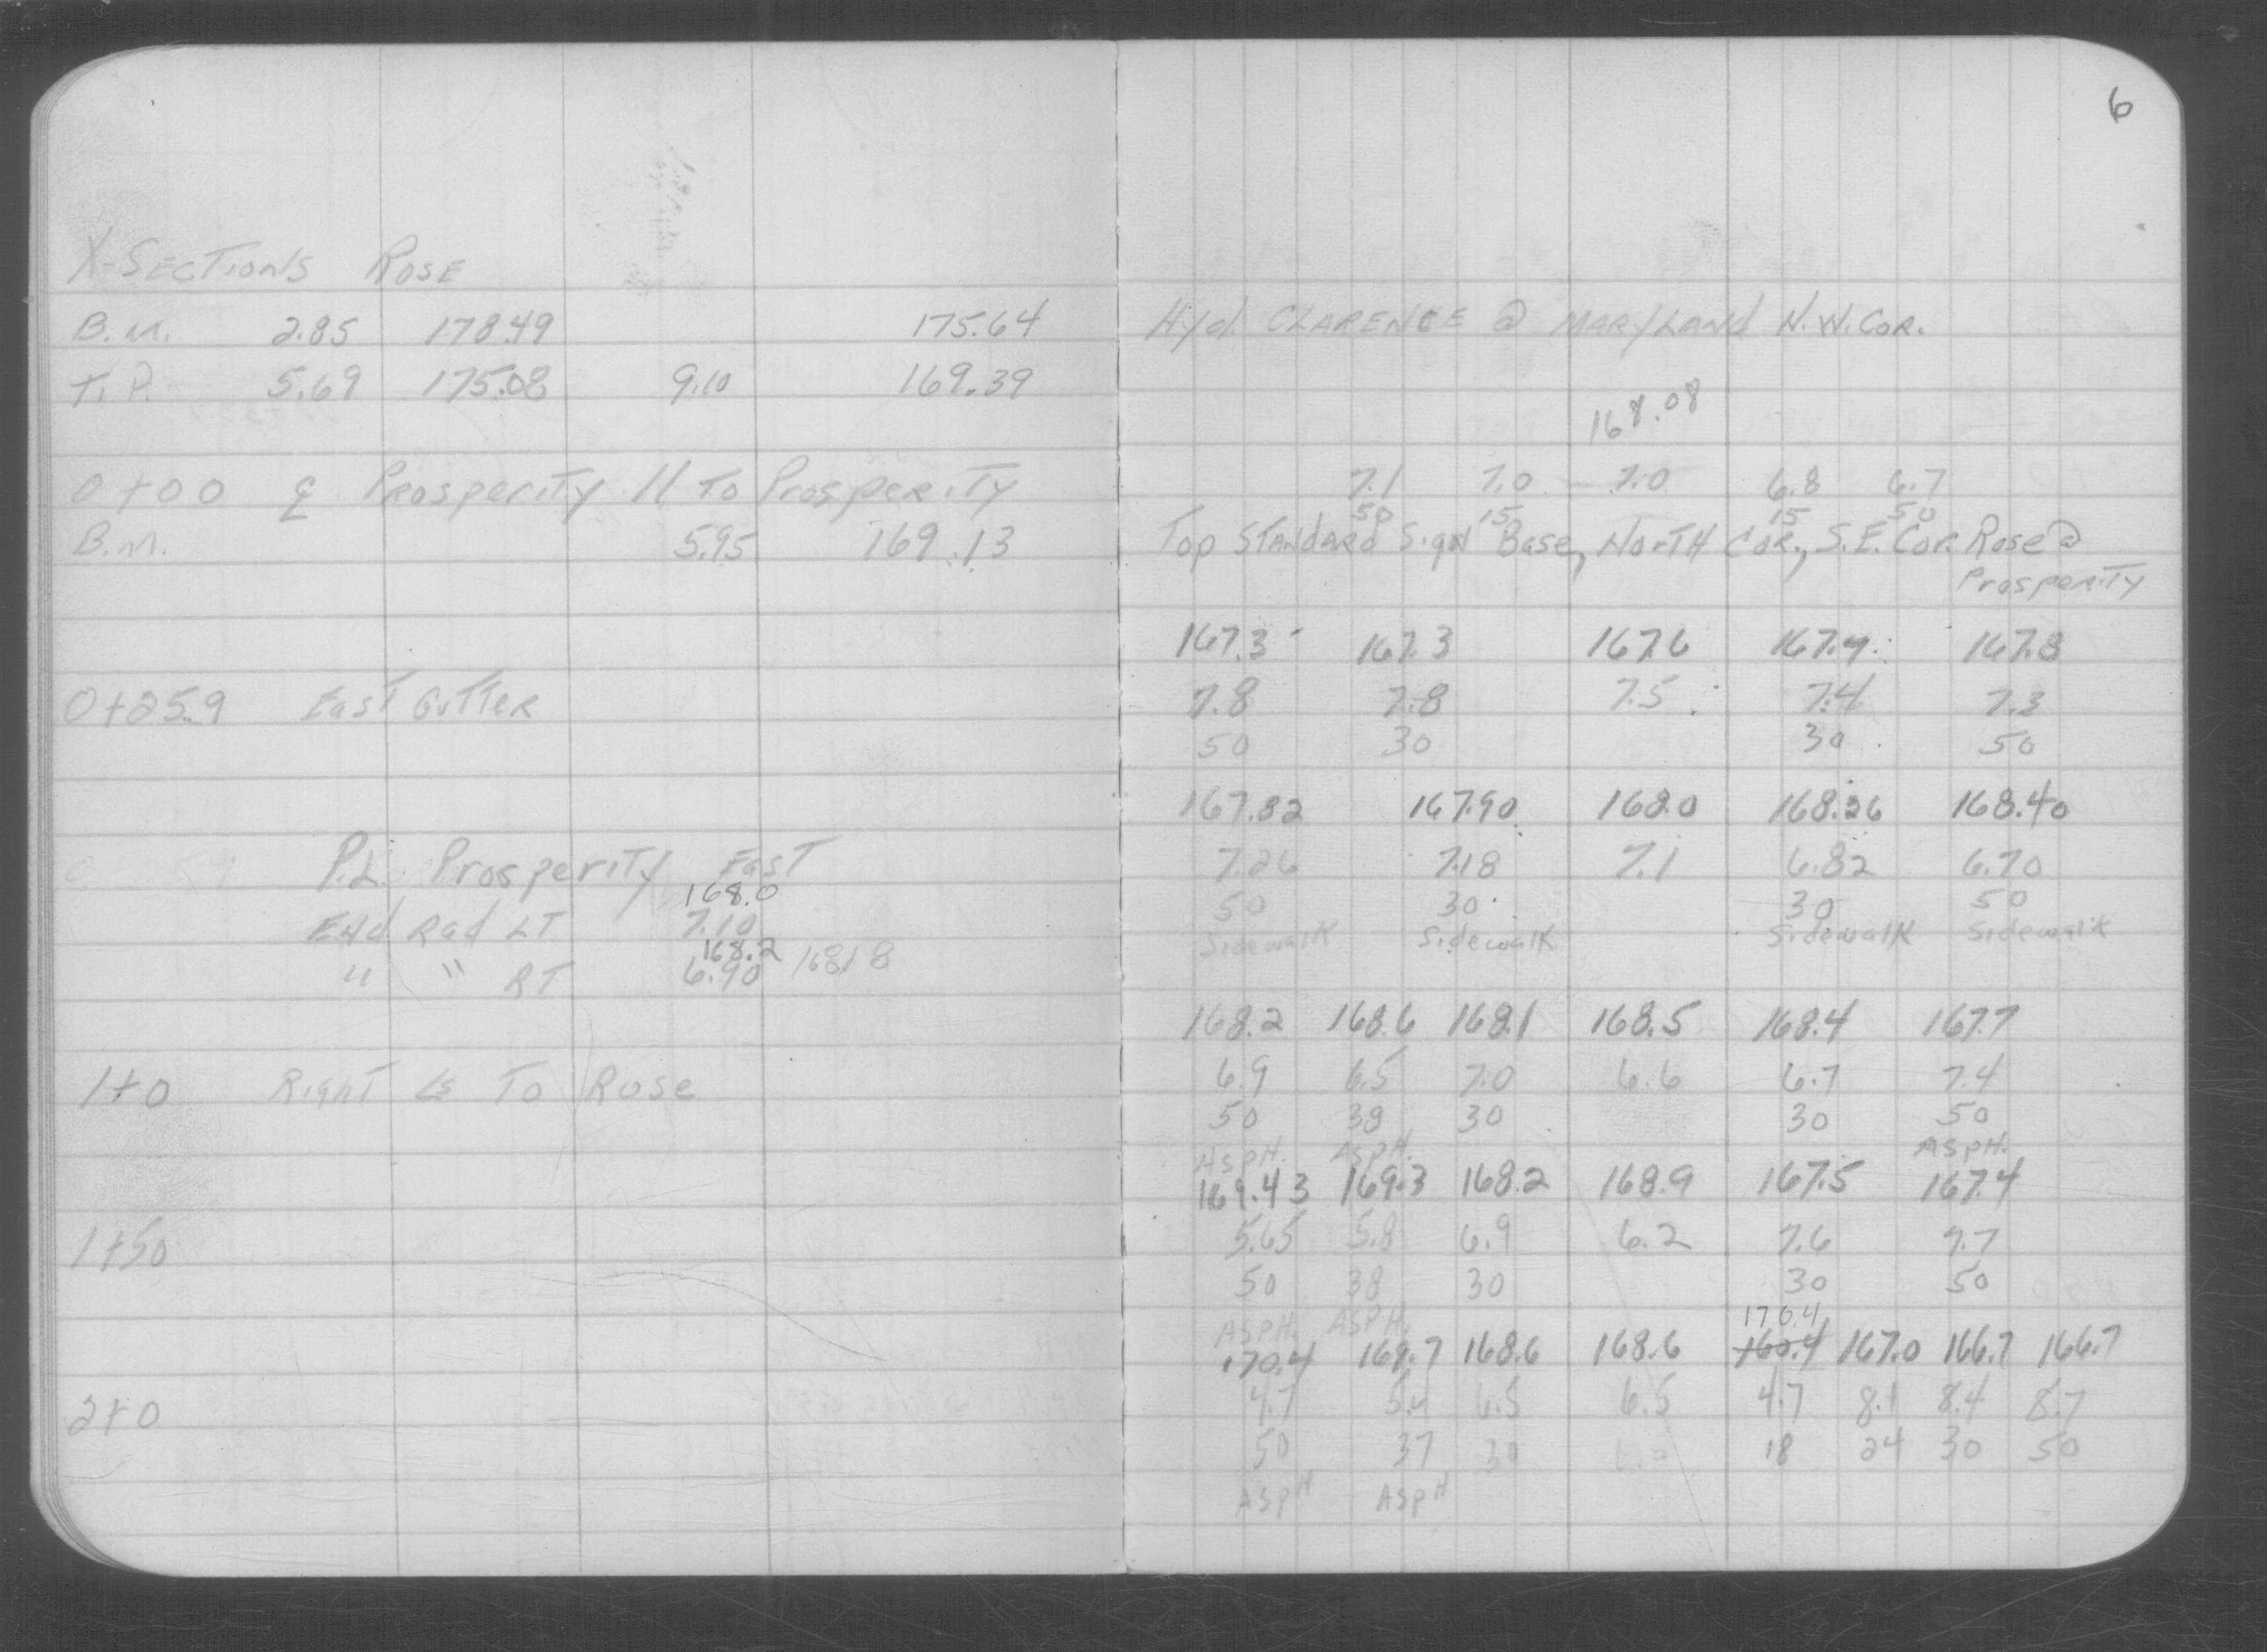 6
X-SECTIONS ROSE
B.M. 2.85 178.49 175.64 Hyd. CLARENCE @ MARYLAND N.W. COR.
T.P. 5.69 175.08 9.10 169.39
168.08
0+00 ℄ Prosperity // To Prosperity 7.1 7.0 7.0 6.8 6.7
50 15 15 50
B.M. 5.95 169.13 Top STANDARD Sign Base, NORTH COR., S.E. COR. Rose @
Prosperity
167.3 167.3 167.6 167.7 167.8
0+25.9 East Gutter 7.8 7.8 7.5 7.4 7.3
50 30 30 50
167.82 167.90 168.0 168.26 168.40
P.L. Prosperity East 7.26 7.18 7.1 6.82 6.70
168.0
50 30 30 50
End Rad LT 7.10 Sidewalk Sidewalk Sidewalk Sidewalk
168.2
" " RT 6.90 168.18
168.2 168.6 168.1 168.5 168.4 167.7
1+0 Right ∠s To Rose 6.9 6.5 7.0 6.6 6.7 7.4
50 38 30 30 50
ASPH. ASPH. ASPH.
169.43 169.3 168.2 168.9 167.5 167.4
1+50 5.65 5.8 6.9 6.2 7.6 7.7
50 38 30 30 50
ASPH. ASPH. 170.4
170.4 169.7 168.6 168.6 160.4 167.0 166.7 166.7
2+0 4.7 5.4 6.5 6.5 4.7 8.1 8.4 8.7
50 37 30 18 24 30 50
ASPH ASPH